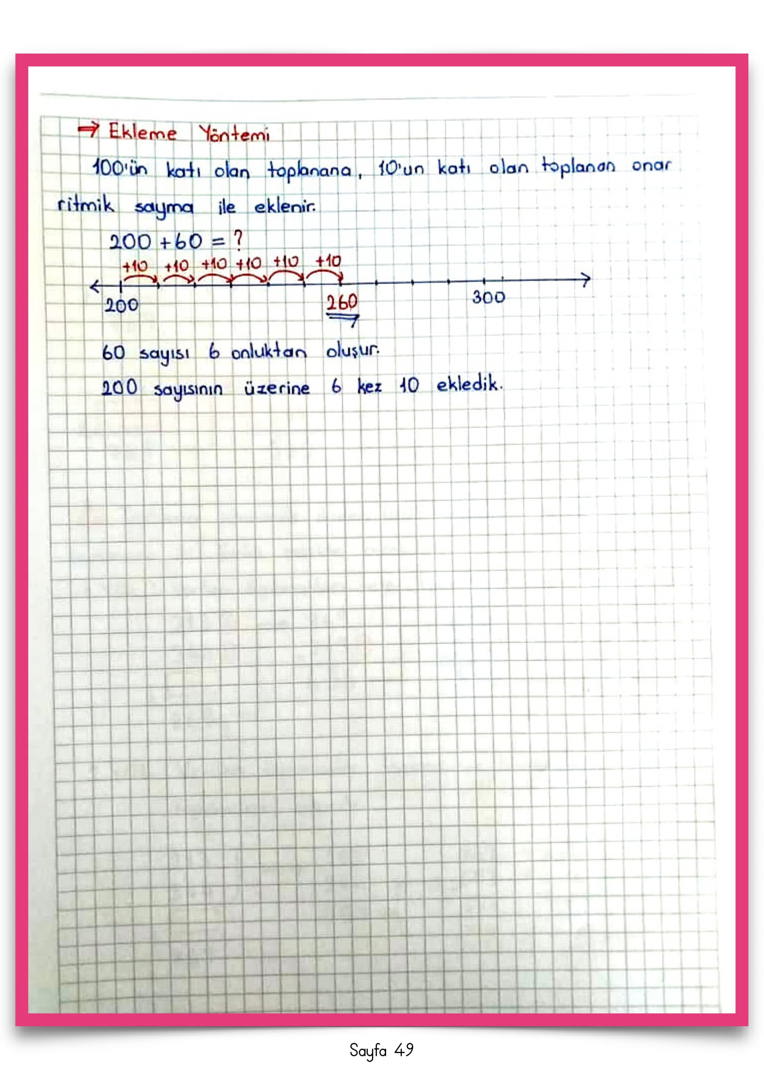 → Ekleme Yöntemi
100'ün katı olan toplanana, 10'un katı olan toplanan onar
ritmik sayma ile eklenir.
200 + 60 = ?
+10 +10 +10 +10 +10 +10
200 260 300
60 sayısı 6 onluktan oluşur.
200 sayısının üzerine 6 kez 10 ekledik.
Sayfa 49